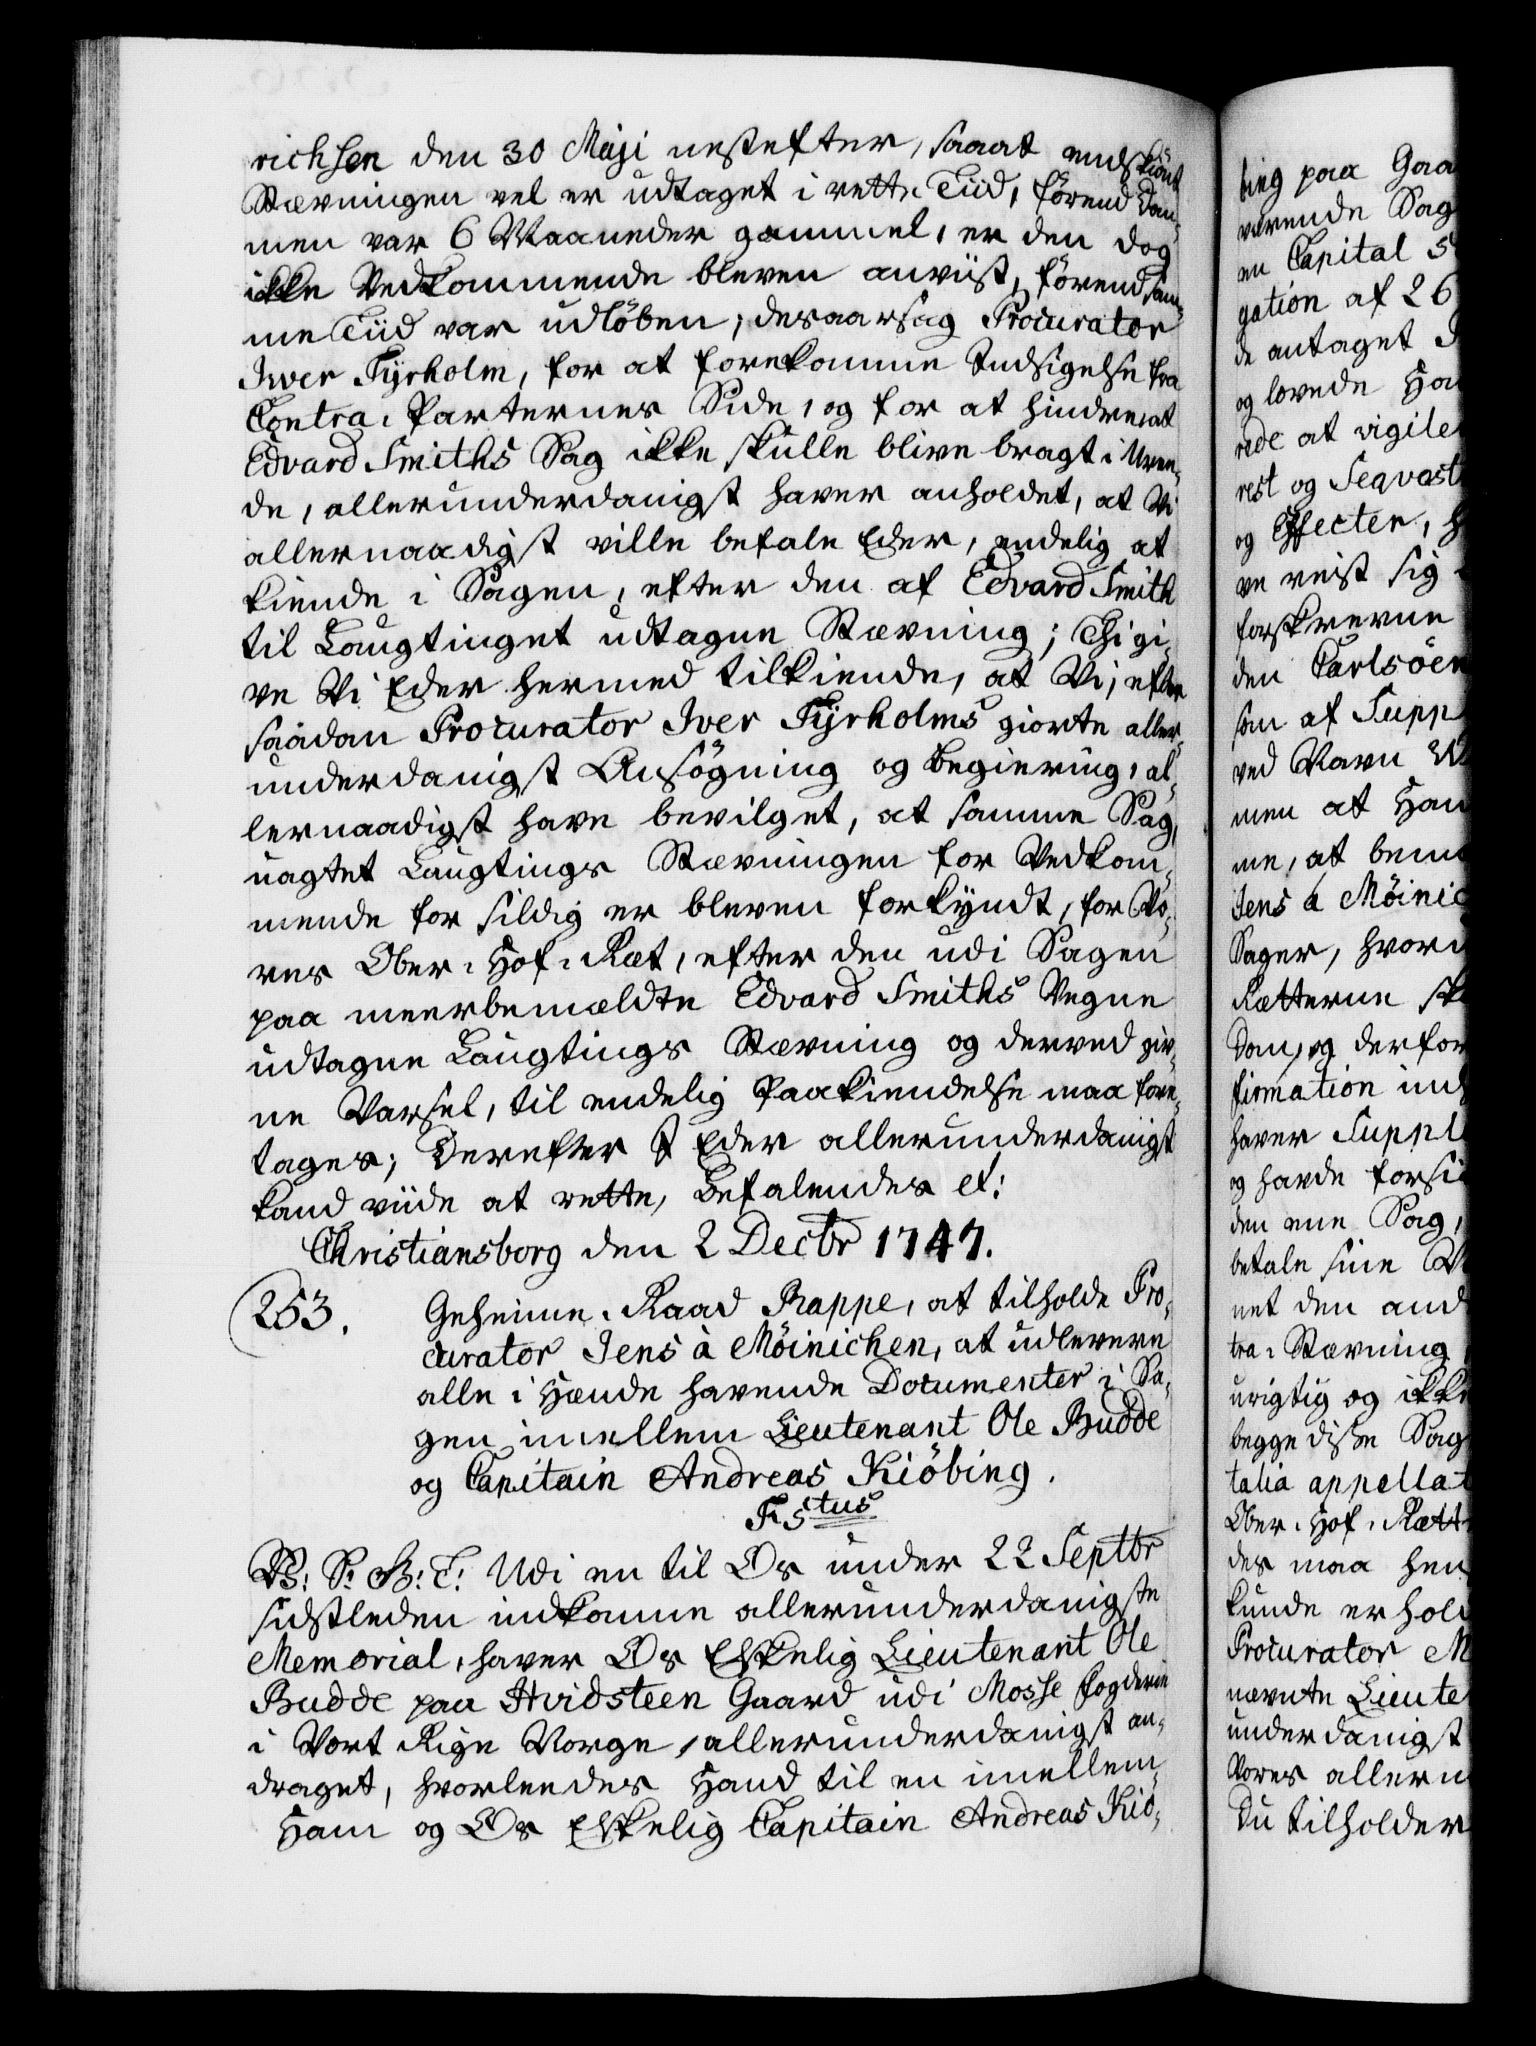 richsen den 30 Maji nestefter, saaat endskiönt
Stævningen vel er udtaget i rette Tiid, förend Dom-
men var 6 Maaneder gammel, er den dog
ikke Vedkommende bleven anviist, förend sam-
me Tiid var udlöben, desaarsag Procurator
Iver Fyrholm, for at forekomme Indsigelse fra
Contra-Parternes Side, og for at hindre, at
Edvard Smiths Sag ikke skulle blive bragt i Uren-
de, allerunderdanigst haver anholdet, at Vi
allernaadigst ville befale Eder, endelig at
kiende i Sagen, efter den af Edvard Smith
til Laugtinget udtagne Stævning; Thi gi-
ve Vi Eder hermed tilkiende, at Vi, efter
saadan Procurator Iver Fyrholms giorte aller-
underdanigst Ansögning og Begiering, al-
lernaadigst have bevilget, at samme Sag,
uagtet Laugtings Stævningen for Vedkom-
mende for sildig er bleven forkyndt, for Vo-
res Ober-Hof-Ræt, efter den udi Sagen
paa meerbemældte Edvard Smiths Vegne
udtagne Laugtings Stævning og derved giv-
ne Varsel, til endelig Paakiendelse maa fore-
tages; Derefter I Eder allerunderdanigst
kand viide at rette, Befalendes et:
Christiansborg den 2 Decbr 1747.
253. Geheime-Raad Rappe, at tilholde Pro-
curator Jens à Möinichen, at udlevere
alle i Hænde havende Documenter i Sa-
gen imellem Lieutenant Ole Budde
og Capitain Andreas Kiöbing.
F 5tus
V: S: G: T: Udi en til Os under 22 Septbr
sidstleden indkomne allerunderdanigste
Memorial, haver Os Elskelig Lieutenant Ole
Budde paa Hvidsteen Gaard udi Mosse Fogderie
i Vort Rige Norge, allerunderdanigst an-
draget, hvorleedes Hand til en imellem
Ham og Os Elskelig Capitain Andreas Kiö-
bing paa Gaa
værende Sag
en Capital
gation af 26
de antaget
og lovede Ha
rede at vigile
rest og Seqvest
og Effecter,
ve reist sig
forskrevne
den Carlsöen
som af Suppl
ved Navn
men at Ham
me, at bem
Jens à Möinic
Sager, hvor
Rætterne sk
Dom, og derfor
firmation ind
haver Suppl
og havde forsi
den ene Sag,
betale sine
net den and
tra-Stævning
urigtig og ikke
begge disse Sag
talia appellat
Ober-Hof-Rætt
des maa hen
kunde erhol
Procurator M
nævnte Lieute
underdanigst
Vores allern
Du tilholder